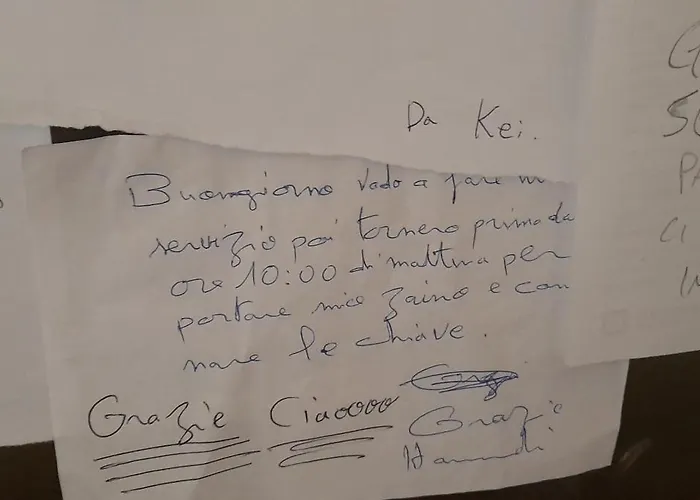 Da Kei.
Buongiorno vado a fare
servizio poi tornero prima da
ore 10:00 di mattina per
portare mio zaino e con
nare le chiave.
Grazie Ciaoooo
Grazie
Hamdi
G
SC
PA
CI
IN